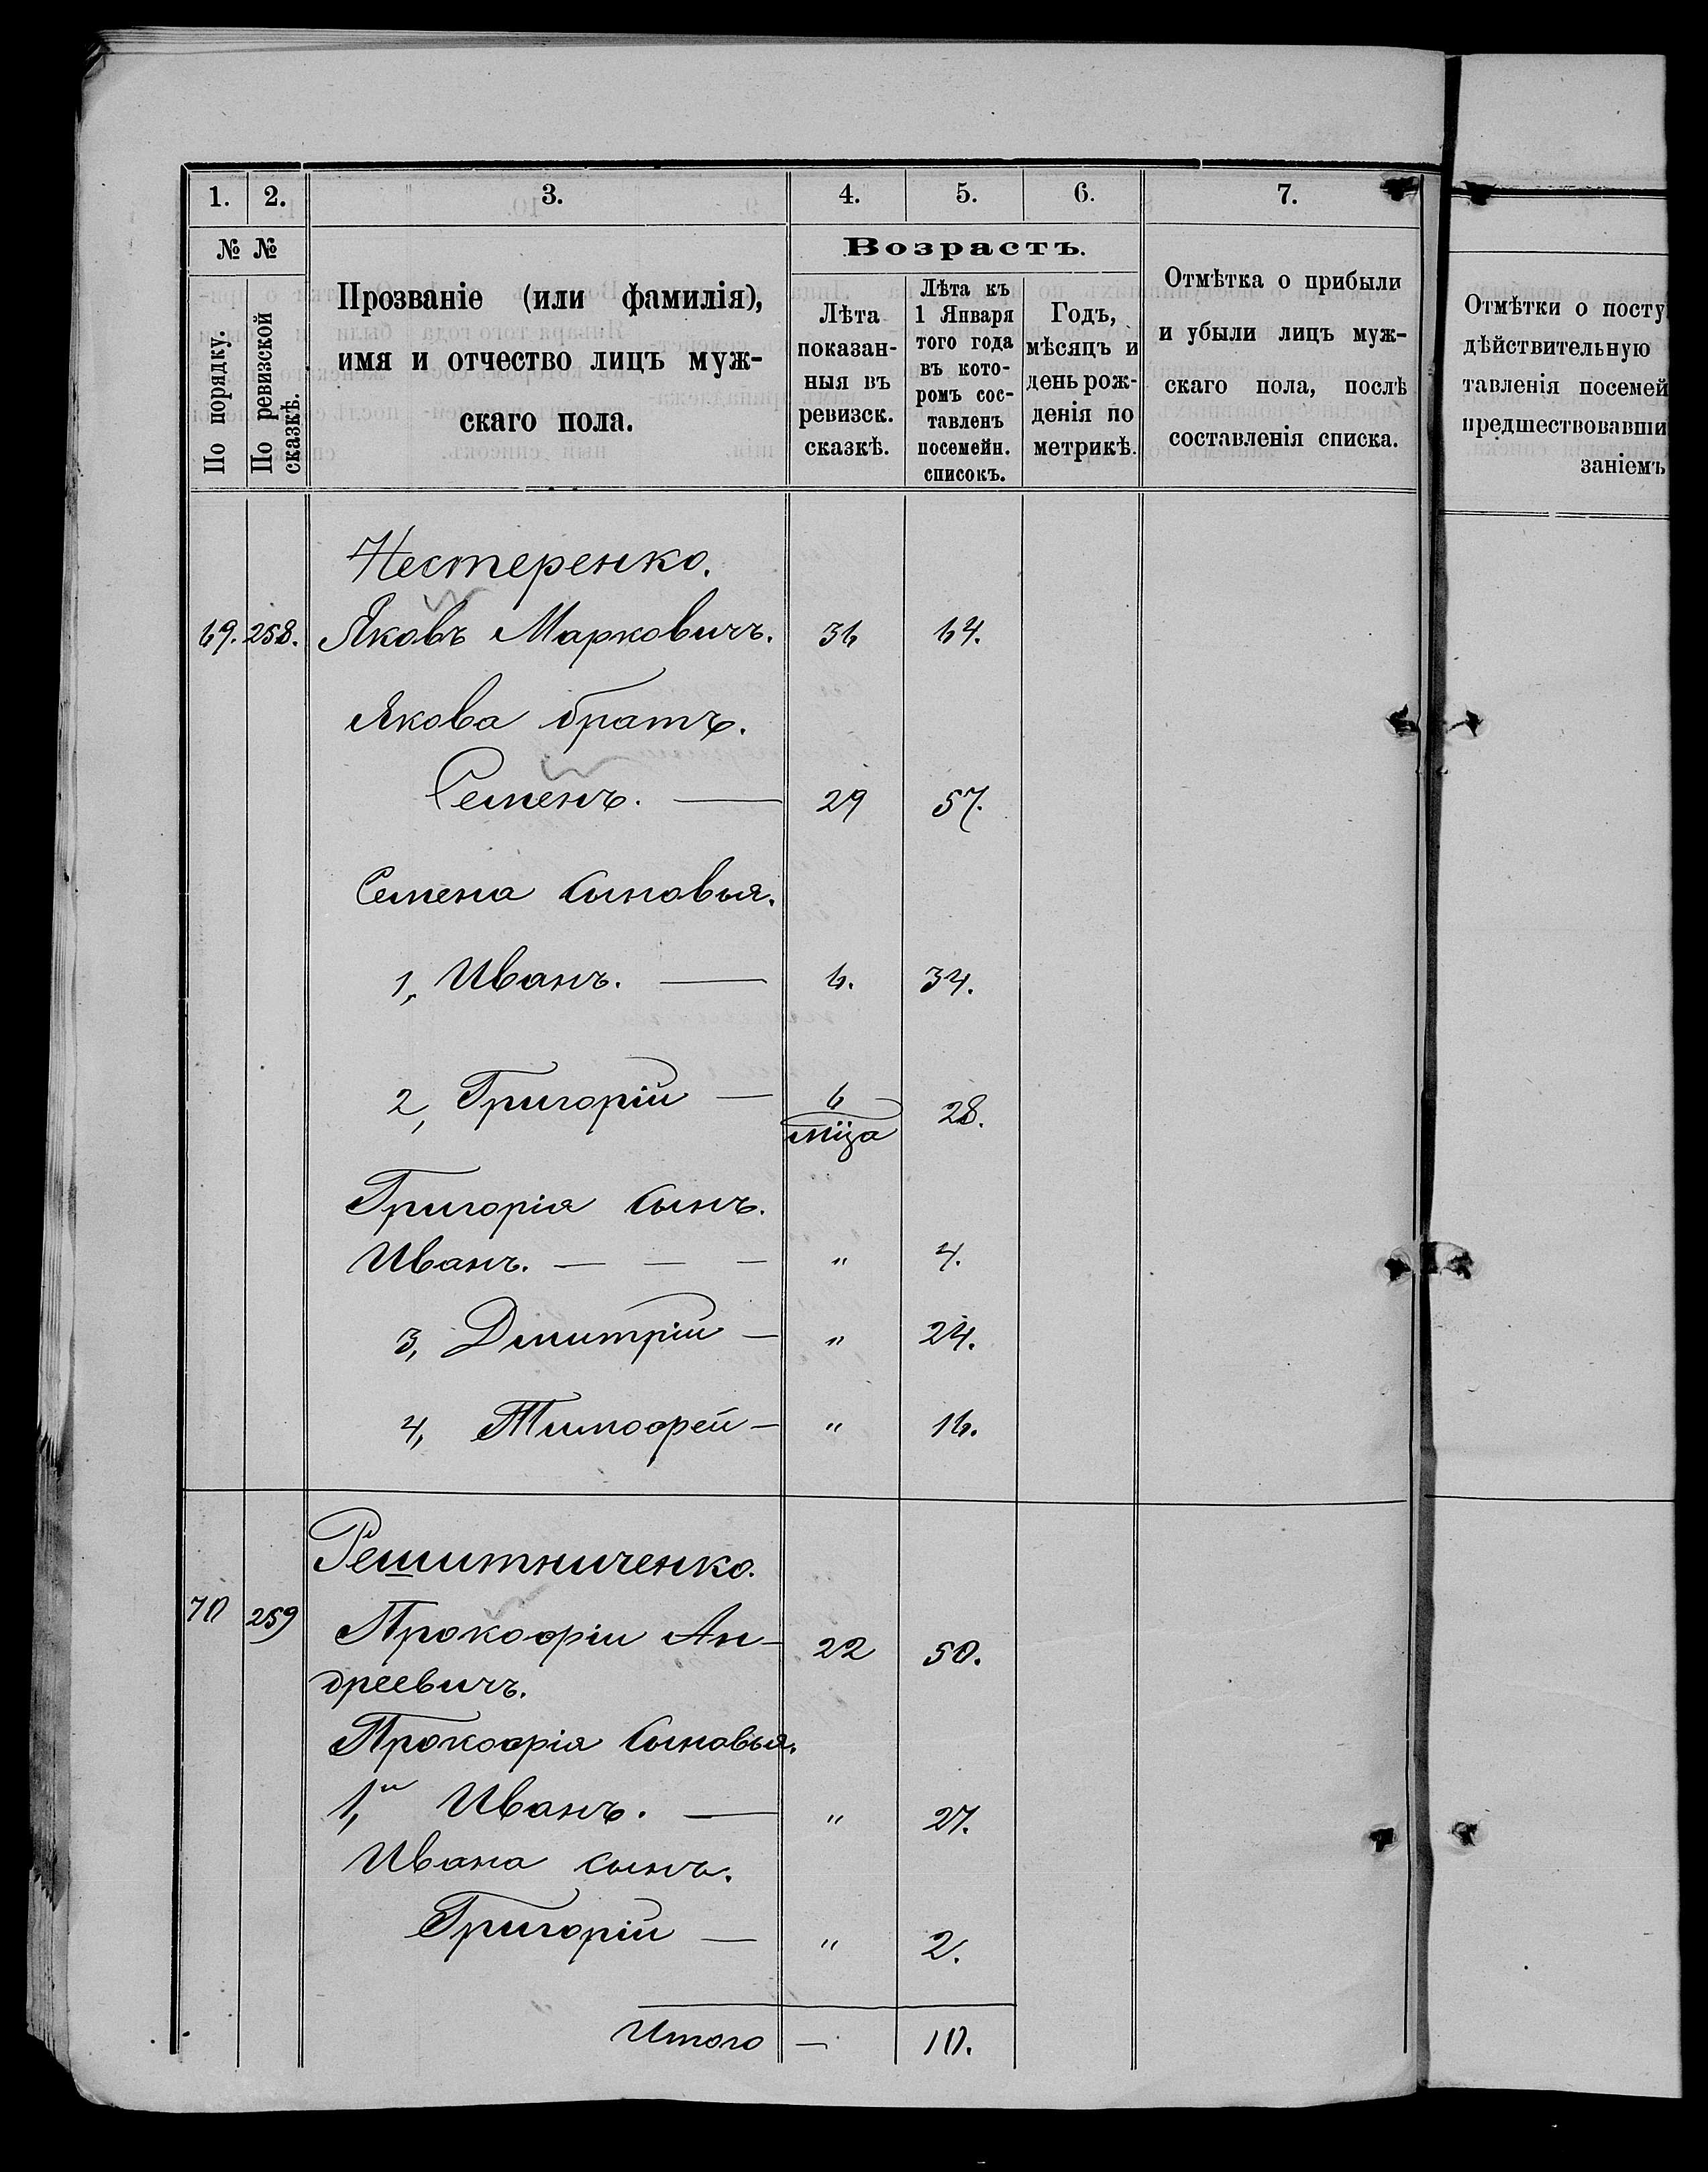 1. 2. 3. 4. 5. 6. 7.
№ №
По порядку.
По ревизской сказкѣ.
Прозваніе (или фамилія),
имя и отчество лицъ муж-
скаго пола.
Возрастъ.
Лѣта
показан-
ныя въ
ревизск.
сказкѣ.
Лѣта къ
1 Января
того года
въ кото-
ромъ сос-
тавленъ
посемейн.
списокъ.
Годъ,
мѣсяцъ и
день рож-
денія по
метрикѣ.
Отмѣтка о прибыли
и убыли лицъ муж-
скаго пола, послѣ
составленія списка.
Отмѣтки о посту
дѣйствительную
тавленія посемей
предшествовавши
заніемъ
Нестеренко.
69. 258. Яковъ Марковичъ. 36 64.
Якова братъ.
Семенъ. — 29 57.
Семена сыновья.
1, Иванъ. — 6. 34.
2, Григорій — 6 мѣца 28.
Григорія сынъ.
Иванъ. — — — " 4.
3, Дмитрій — " 24.
4, Тимофей — " 16.
Решитниченко.
70 259 Прокофій Ан- 22 50.
дреевичъ.
Прокофія сыновья.
1,й Иванъ. — " 27.
Ивана сынъ.
Григорій — " 2.
Итого — 10.